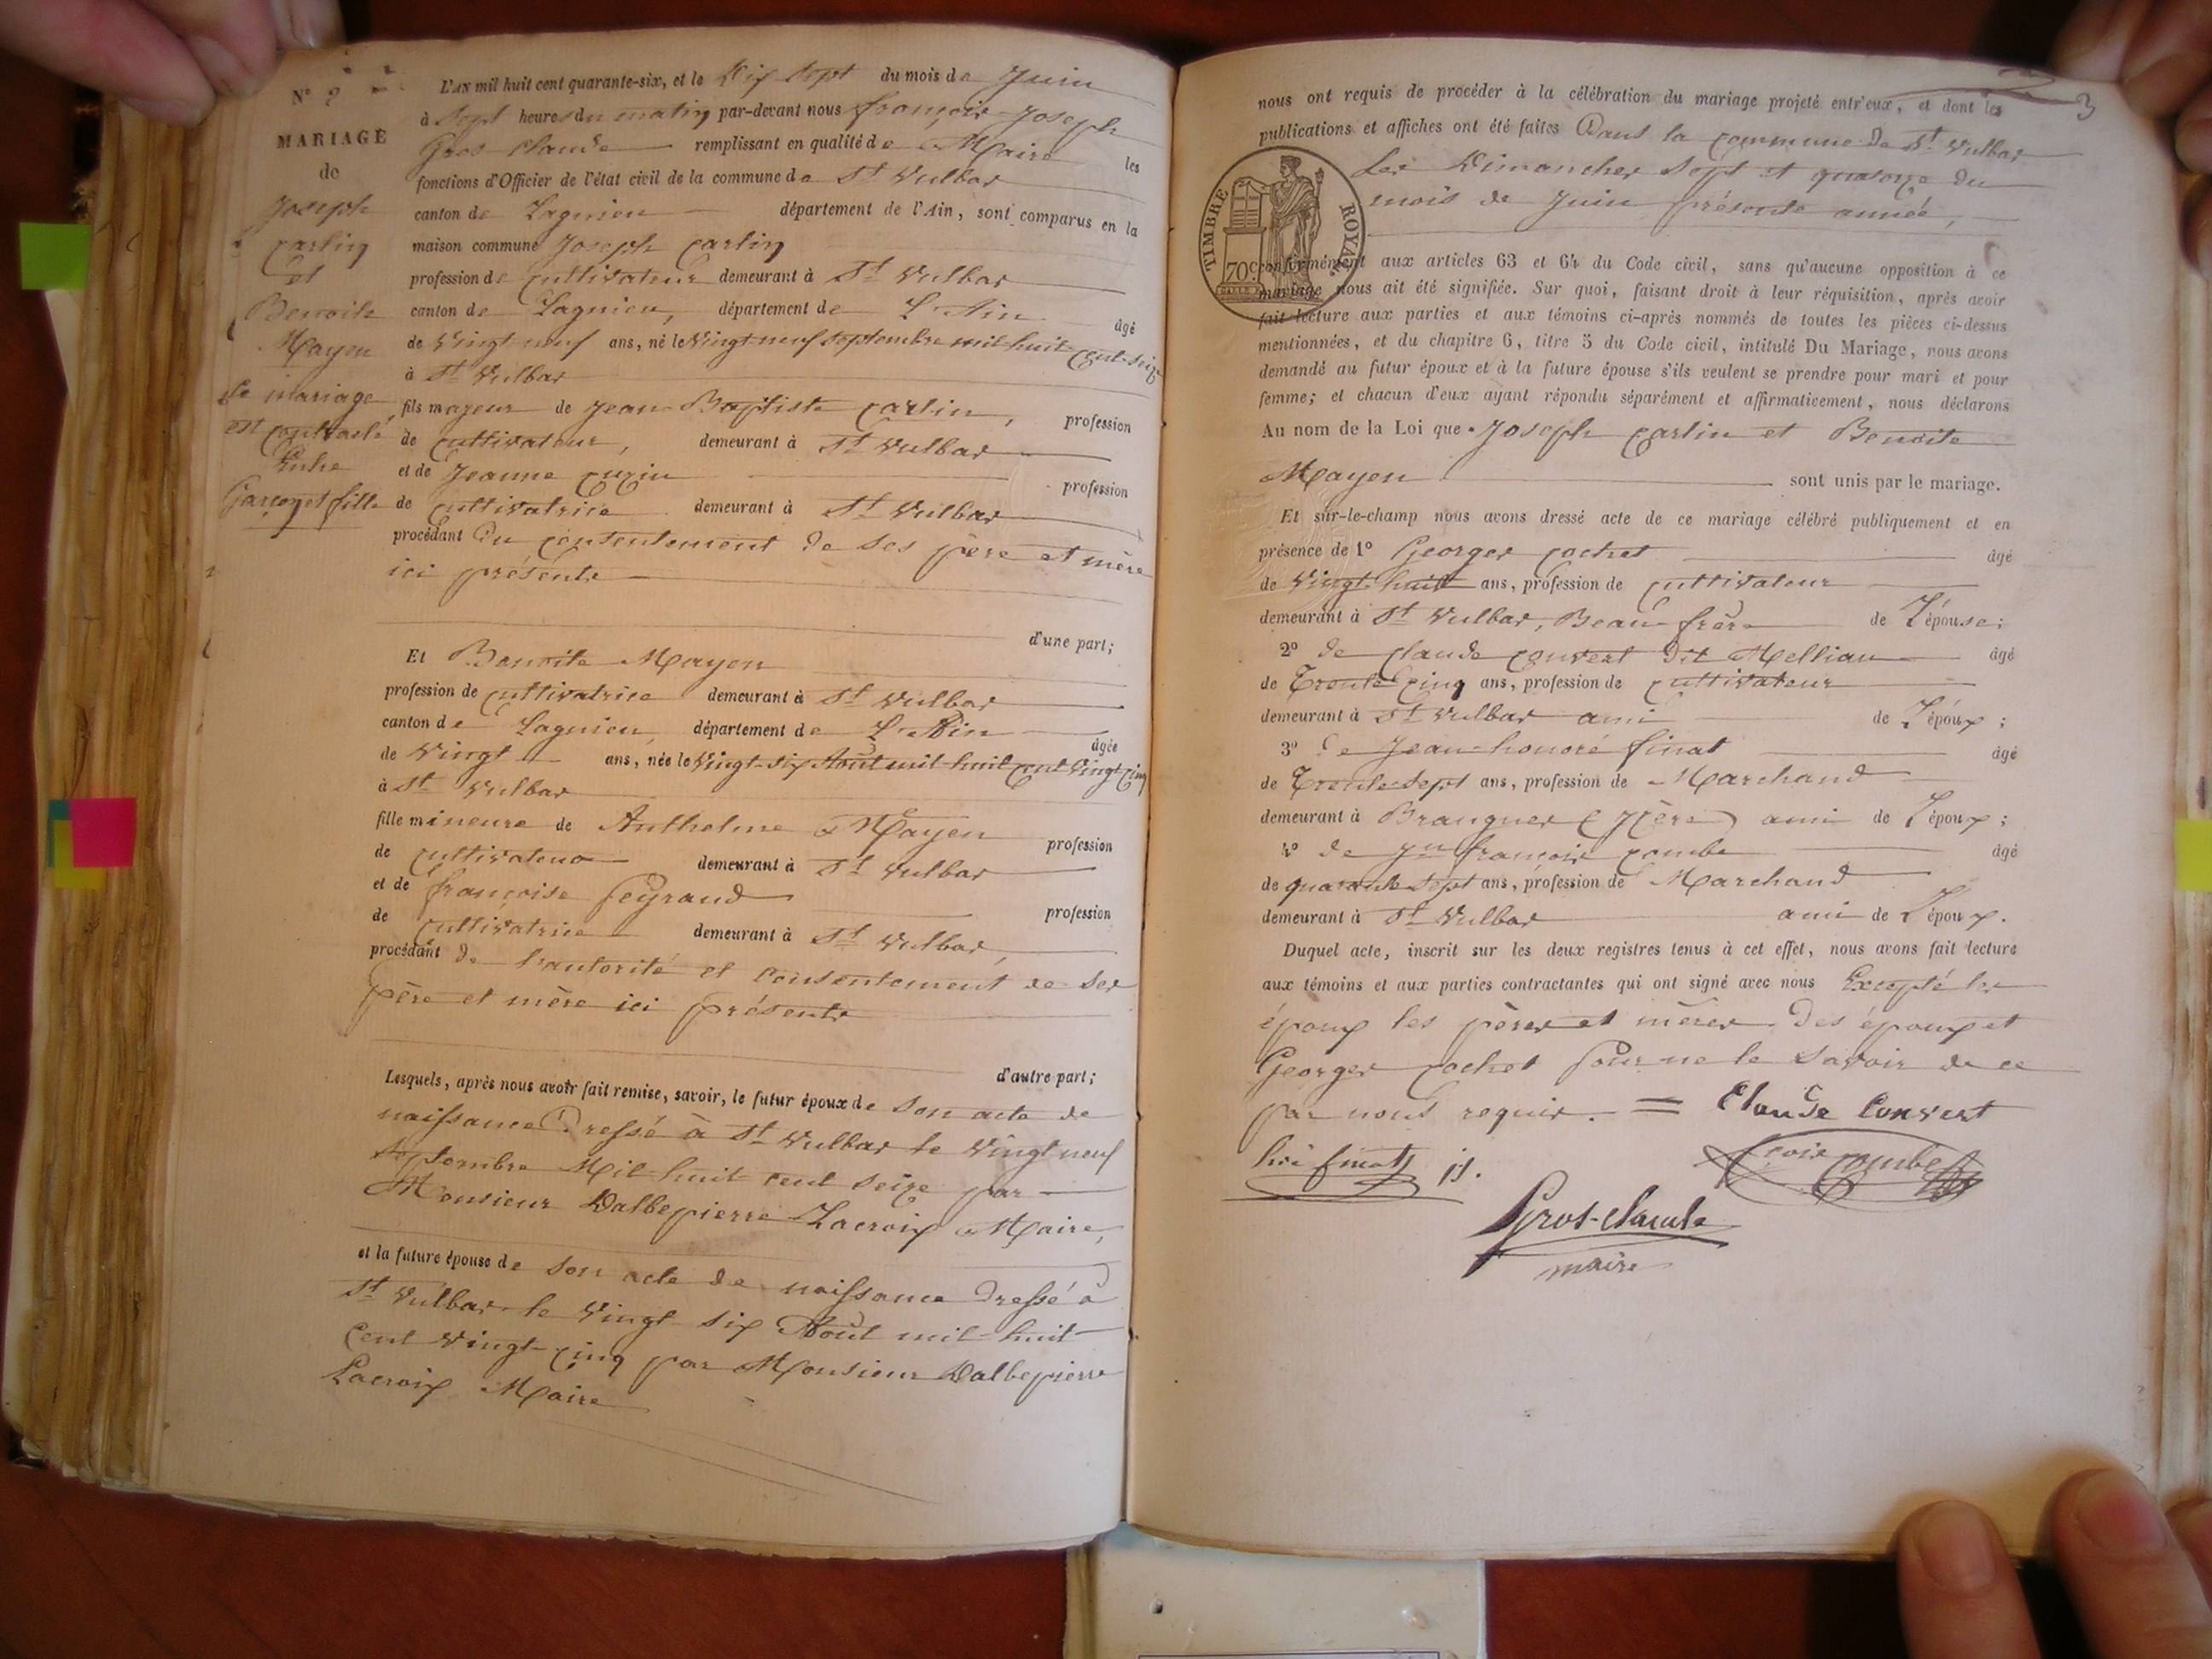 N° 2
MARIAGE
de
Joseph
Carlin
et
Benoite
Mayen
Le mariage
est contracté
Entre
Garçon et fille
L'AN mil huit cent quarante-six, et le Dix Sept du mois de Juin
à Sept heures du matin par-devant nous françois-Joseph
Gros-Claude remplissant en qualité de Maire les
fonctions d'Officier de l'état civil de la commune de St Vulbas
canton de Lagnieu département de l'Ain, sont comparus en la
maison commune Joseph Carlin
profession de Cultivateur demeurant à St Vulbas
canton de Lagnieu, département de L'Ain âgé
de Vingt neuf ans, né le Vingt neuf Septembre mil huit Cent Seize
à St Vulbas
fils majeur de Jean-Baptiste Carlin, profession
de Cultivateur, demeurant à St Vulbas
et de Jeanne Cuzin profession
de Cultivatrice demeurant à St Vulbas
procédant Du Consentement de Ses père et mère
ici présents
d'une part;
Et Benoite Mayen
profession de Cultivatrice demeurant à St Vulbas
canton de Lagnieu, département de L'Ain âgée
de Vingt ans, née le Vingt-Six Août mil huit Cent Vingt Cinq
à St Vulbas
fille mineure de Anthelme Mayen profession
de Cultivateur demeurant à St Vulbas
et de françoise Peyraud profession
de Cultivatrice demeurant à St Vulbas,
procédant de L'autorité et Consentement de Ses
père et mère ici présents
d'autre part;
Lesquels, après nous avoir fait remise, savoir, le futur époux de Son acte de
naissance Dressé à St Vulbas le Vingt neuf
Septembre Mil-huit Cent Seize par
Monsieur Dalbepierre-Lacroix Maire,
et la future épouse de Son acte de naissance Dressé à
St Vulbas le Vingt Six Août mil-huit
Cent Vingt-Cinq par Monsieur Dalbepierre
Lacroix Maire
3
nous ont requis de procéder à la célébration du mariage projeté entr'eux, et dont les
publications et affiches ont été faites Dans la Commune de St Vulbas
Les Dimanches Sept et quatorze du
mois de Juin présente année,
TIMBRE ROYAL
70c
conformément aux articles 63 et 64 du Code civil, sans qu'aucune opposition à ce
mariage nous ait été signifiée. Sur quoi, faisant droit à leur réquisition, après avoir
fait lecture aux parties et aux témoins ci-après nommés de toutes les pièces ci-dessus
mentionnées, et du chapitre 6, titre 5 du Code civil, intitulé Du Mariage, nous avons
demandé au futur époux et à la future épouse s'ils veulent se prendre pour mari et pour
femme; et chacun d'eux ayant répondu séparément et affirmativement, nous déclarons
Au nom de la Loi que Joseph Carlin et Benoite
Mayen sont unis par le mariage.
Et sur-le-champ nous avons dressé acte de ce mariage célébré publiquement et en
présence de 1° Georges Cochet âgé
de Vingt-huit ans, profession de Cultivateur
demeurant à St Vulbas, Beau-frère de L'épouse;
2° de Claude Convert Dit Mellian âgé
de Trente Cinq ans, profession de Cultivateur
demeurant à St Vulbas ami de L'époux;
3° De Jean-honoré finat âgé
de Trente Sept ans, profession de Marchand
demeurant à Brangues (Isère) ami de L'époux;
4° de Jn françois Combe âgé
de quarante Sept ans, profession de Marchand
demeurant à St Vulbas ami de L'époux.
Duquel acte, inscrit sur les deux registres tenus à cet effet, nous avons fait lecture
aux témoins et aux parties contractantes qui ont signé avec nous Excepté les
époux les pères et mères Des époux et
Georges Cochet pour ne le Savoir de ce
par nous requis. = Claude Convert
finat
Combe
Gros-Claude
maire